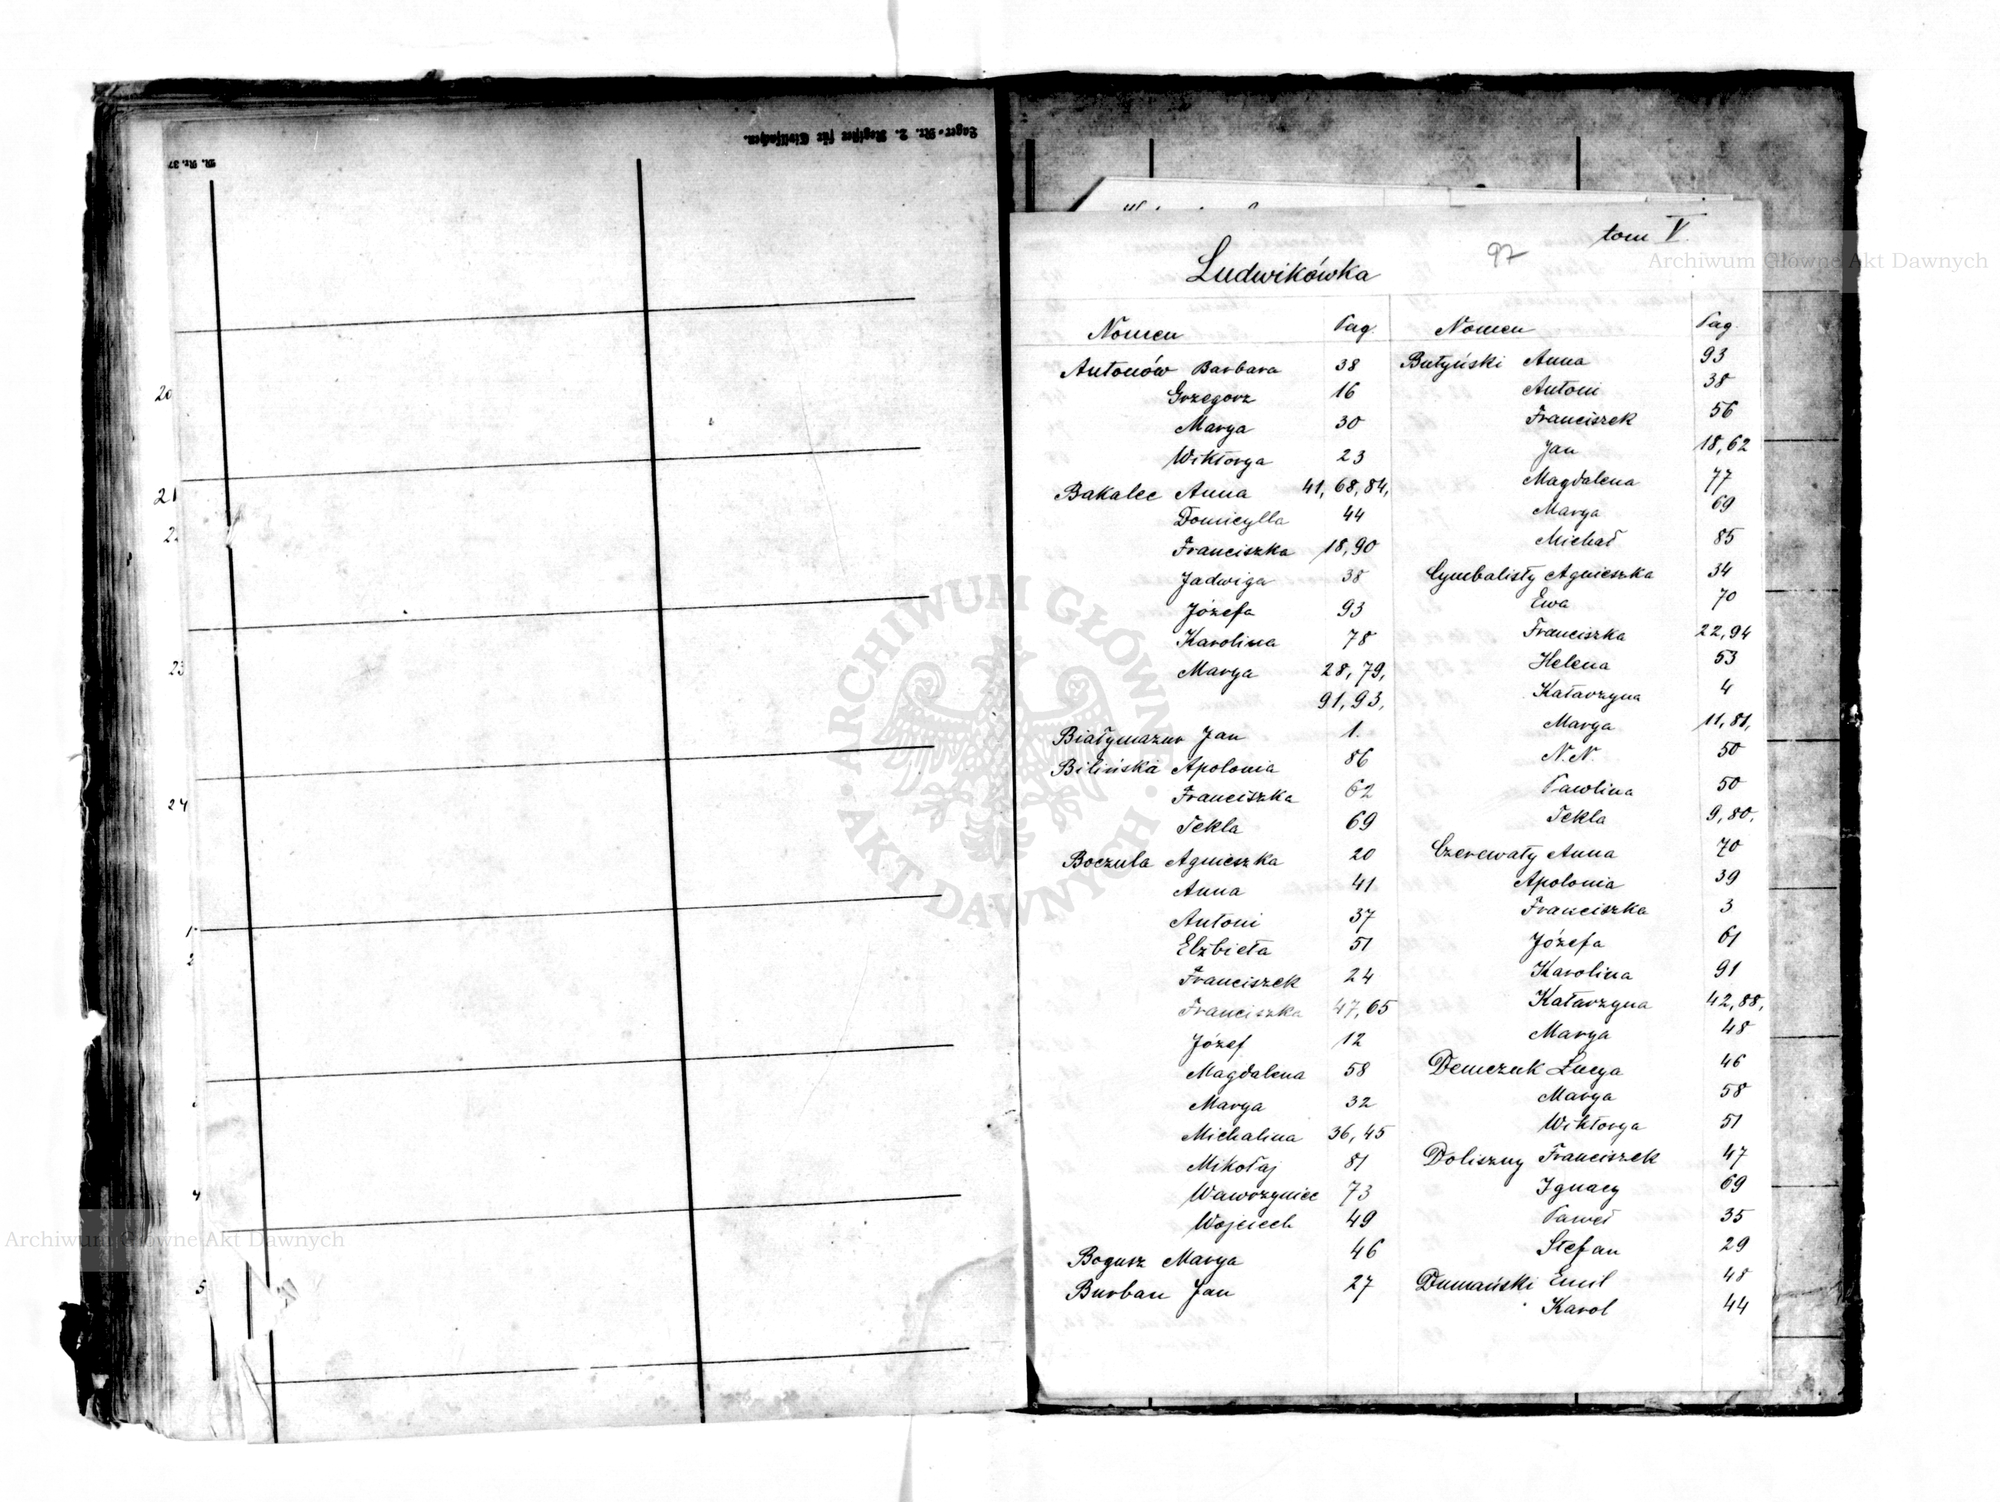 Lager-Nr. 2. Register für Civilsachen.
M. Nr. 37
20
21
22
23
24
1
2
4
5
tom V.
97
Ludwikówka
Nomen Pag.
Antonów Barbara 38
Grzegorz 16
Marya 30
Wiktorya 23
Bakalec Anna 41, 68, 84,
Domicylla 44
Franciszka 18, 90
Jadwiga 38
Józefa 93
Karolina 78
Marya 28, 79,
91, 93,
Białymazur Jan 1.
Bilińska Apolonia 86
Franciszka 62
Tekla 69
Boczula Agnieszka 20
Anna 41
Antoni 37
Elżbieta 51
Franciszek 24
Franciszka 47, 65
Józef 12
Magdalena 58
Marya 32
Michalina 36, 45
Mikołaj 81
Wawrzyniec 73
Wojciech 49
Bogusz Marya 46
Burban Jan 27
Nomen Pag.
Butyński Anna 93
Antoni 38
Franciszek 56
Jan 18, 62
Magdalena 77
Marya 69
Michał 85
Cymbalisty Agnieszka 34
Ewa 70
Franciszka 22, 94
Helena 53
Katarzyna 4
Marya 11, 81,
N. N. 50
Pawlina 50
Tekla 9, 80,
Czerewaty Anna 70
Apolonia 39
Franciszka 3
Józefa 61
Karolina 91
Katarzyna 42, 88,
Marya 48
Demczuk Łucya 46
Marya 58
Wiktorya 51
Doliszny Franciszek 47
Ignacy 69
Paweł 35
Stefan 29
Dumański Emil 48
Karol 44
Archiwum Główne Akt Dawnych
ARCHIWUM GŁÓWNE · AKT DAWNYCH ·
Archiwum Główne Akt Dawnych